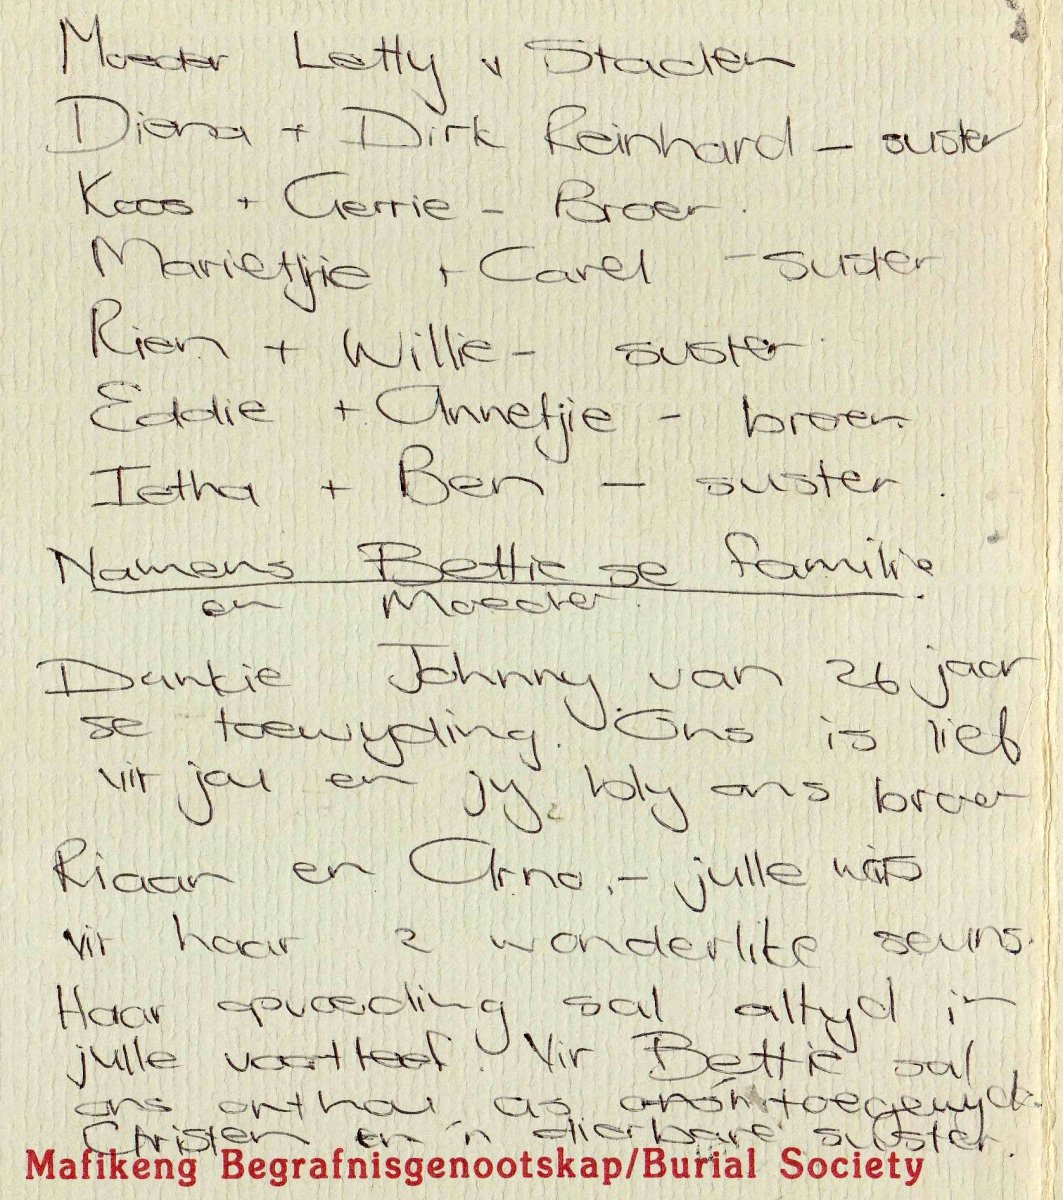 Moeder Letty v Staden
Diena + Dirk Reinhard - suster
Koos + Gerrie - Broer.
Marietjie + Carel - suster
Rien + Willie - suster
Eddie + Annetjie - broer.
Ietha + Ben - suster.
Namens Bettie se familie.
en Moeder.
Dankie Johnny van 26 jaar
se toewyding. Ons is lief
vir jou en jy bly ons broer
Riaan en Arno. - julle was
vir haar 2 wonderlike seuns.
Haar opvoeding sal altyd in
julle voortleef. Vir Bettie sal
ons onthou as ons 'n toegewyde.
Christen en 'n dierbare suster.
Mafikeng Begrafnisgenootskap/Burial Society